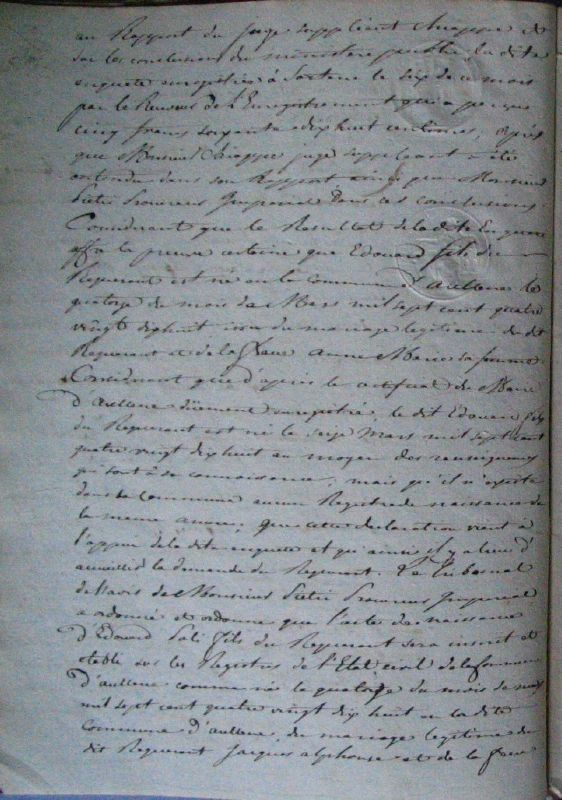 au Rapport du Juge suppléant Chiappe et
sur les conclusions du ministère public la dite
enquete enregistrée à Sartene le six de ce mois
par le Receveur de l'Enregistrement qui a perçu
cinq francs soixante dixhuit centimes, après
que Monsieur Chiappe juge suppléant a été
entendu dans son Rapport ainsi que Monsieur
Pietri Procureur Imperial dans ses conclusions.
Considerant que le Resultat de la dite Enquete
offre la preuve certaine que Edouard fils du
Requerant est né en la Commune d'aullene le
quatorze du mois de Mars mil sept cent quatre
vingt dixhuit issu du mariage legitime du dit
Requerant et de la Anne Marie sa femme.
Considerant que d'après le certificat du Maire
d'aullene düement enregistrée, le dit Edouard fils
du Requerant est né le seize Mars mil sept cent
quatre vingt dixhuit au moyen des renseignemens
qui sont à sa connaissance, mais qu'il n'existe
dans la Commune aucun Registre de naissance de
la meme année; que cette declaration vient à
l'appui de la dite enquete et qu'ainsi il y a lieu d'
accueillir la demande du Requerant. Le Tribunal
de l'avis de Monsieur Pietri Procureur Imperial
a ordonné et ordonne que l'acte de naissance
d'Edouard Poli fils du Requerant sera inscrit et
etabli sur les Registres de l'Etat civil de la Commune
d'aullene comme né le quatorze du mois de mars
mil sept cent quatre vingt dix huit en la dite
Commune d'aullene, du mariage legitime du
dit Requerant Jacques alphonse et de la